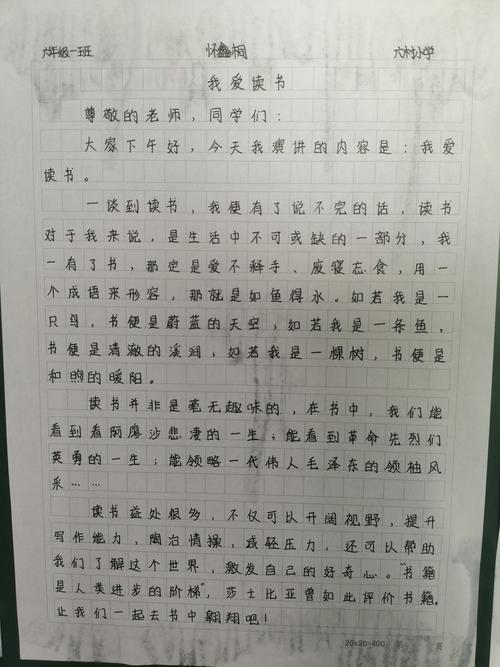 六年级一班 怀鑫桐 六村小学
我爱读书
尊敬的老师，同学们：
大家下午好，今天我演讲的内容是：我爱
读书。
一谈到读书，我便有了说不完的话，读书
对于我来说，是生活中不可或缺的一部分，我
一有了书，那定是爱不释手、废寝忘食，用一
个成语来形容，那就是如鱼得水。如若我是一
只鸟，书便是蔚蓝的天空，如若我是一条鱼，
书便是清澈的溪涧，如若我是一棵树，书便是
和煦的暖阳。
读书并非是毫无趣味的，在书中，我们能
看到看阿廖沙悲凄的一生；能看到革命先烈们
英勇的一生；能领略一代伟人毛泽东的领袖风
采……
读书益处很多，不仅可以开阔视野，提升
写作能力，陶冶情操，减轻压力，还可以帮助
我们了解这个世界，激发自己的好奇心。"书籍
是人类进步的阶梯"，莎士比亚曾如此评价书籍。
让我们一起去书中翱翔吧！
20×20=400 第 页